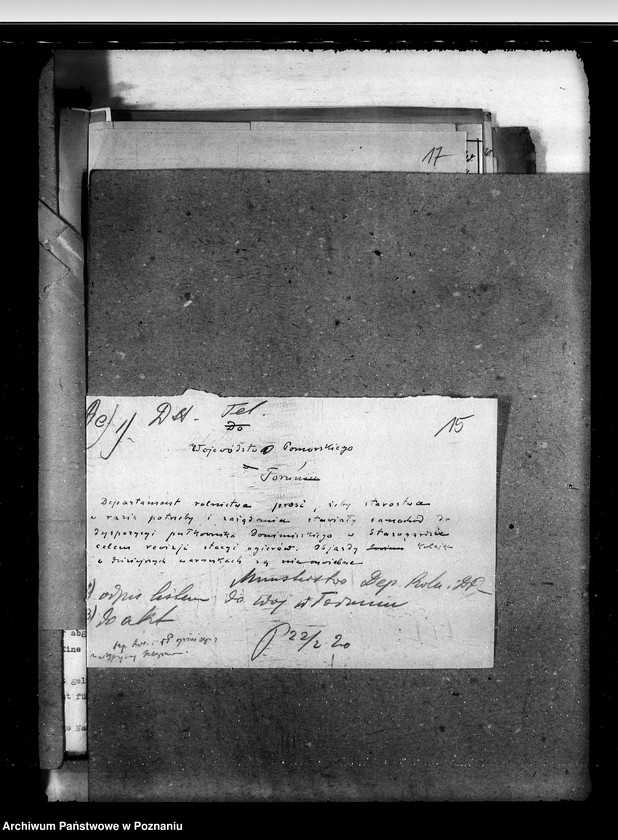 17
15
1/ DH. Tel.
Do
Województwo Pomorskiego
Toruń
Departament rolnictwa prosi, żeby starostwa
w razie potrzeby i zażądania stawiały samochód do
dyspozycji pułkownika Donimirskiego w Starogardzie
celem rewizji stacji ogierów. Objazdy koleją
w dzisiejszych warunkach są niemożliwe
Ministerstwo Dep. Roln. DP.
odpis listem do Woj w Toruniu
do akt
22/2 20
abg
Archiwum Państwowe w Poznaniu